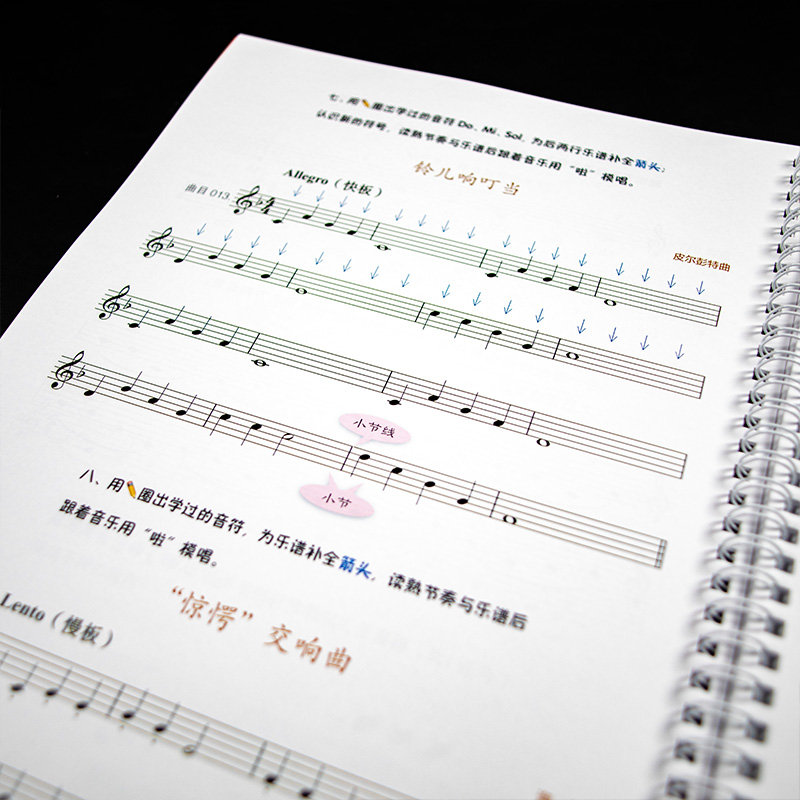 七、用✏圈出学过的音符 Do、Mi、Sol，为后两行乐谱补全箭头；
认识新的符号，读熟节奏与乐谱后跟着音乐用“啦”模唱。
铃儿响叮当
Allegro（快板）
曲目 013
皮尔彭特曲
小节线
小节
八、用✏圈出学过的音符，为乐谱补全箭头，读熟节奏与乐谱后
跟着音乐用“啦”模唱。
“惊愕”交响曲
Lento（慢板）